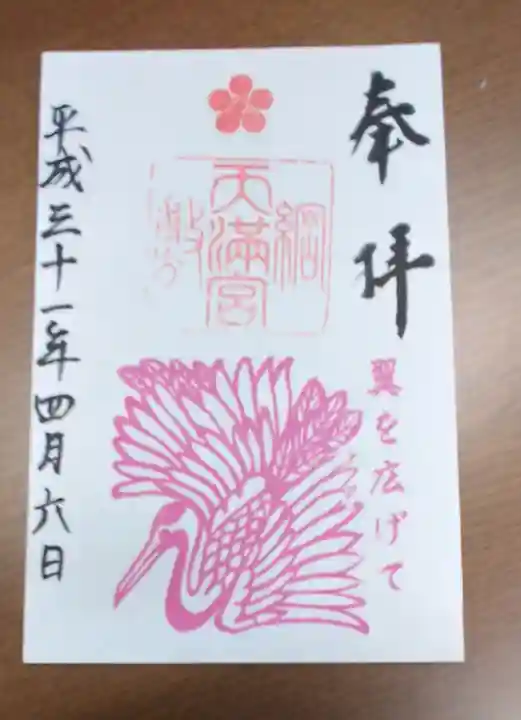 奉拝
翼を広げて
綱敷天満宮
平成三十一年四月六日